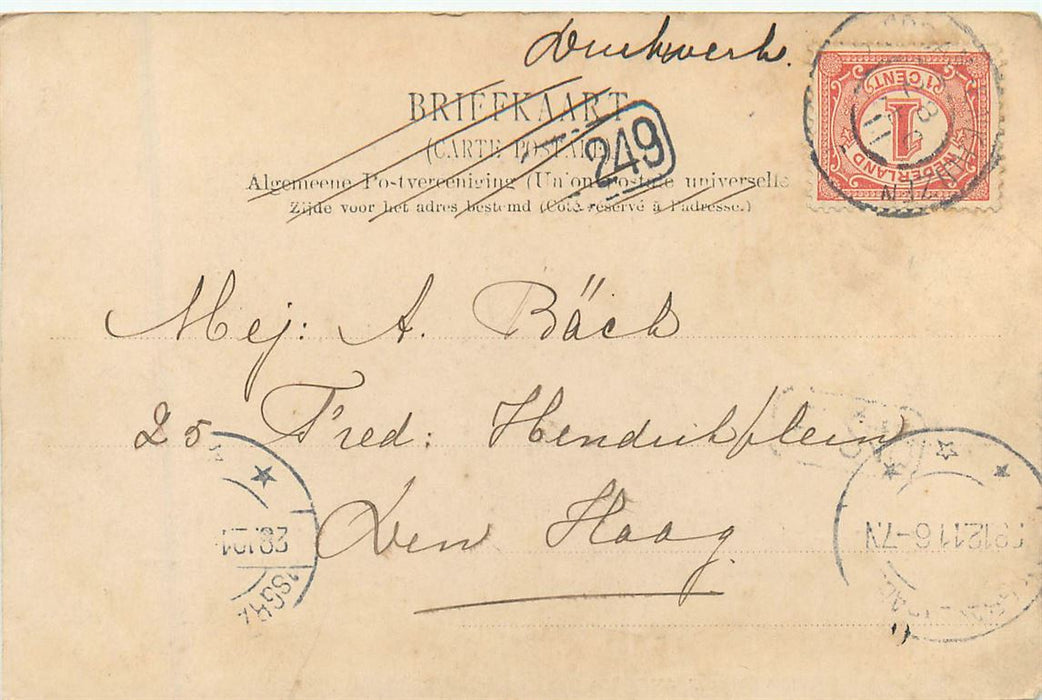 Drukwerk.
BRIEFKAART
(CARTE POSTALE)
249
Algemeene Postvereeniging (Union postale universelle
Zijde voor het adres bestemd (Côté réservé à l'adresse.)
1 CENT
1
NEDERLAND
Mej: A. Bäck
25 Fred: Hendrikplein
Den Haag
28.12.1
'SGRA
8.12.11 6-7N